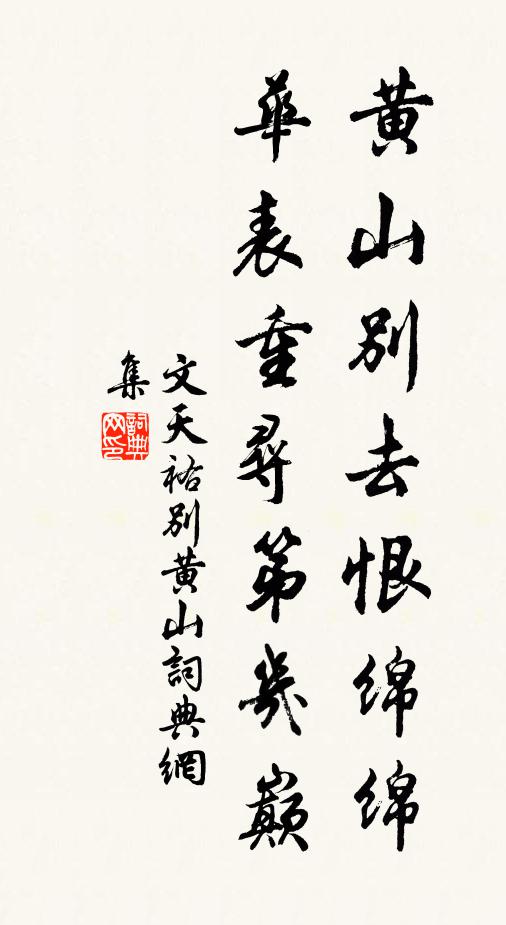 黄山别去恨綿綿
華表重尋第幾巔
文天祐别黄山詞典網
集
詞典
网印